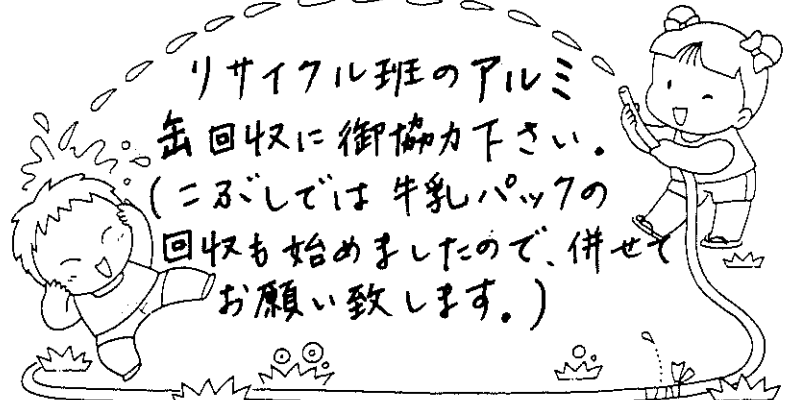 リサイクル班のアルミ
缶回収に御協力下さい。
(こぶしでは牛乳パックの
回収も始めましたので、併せて
お願い致します。)